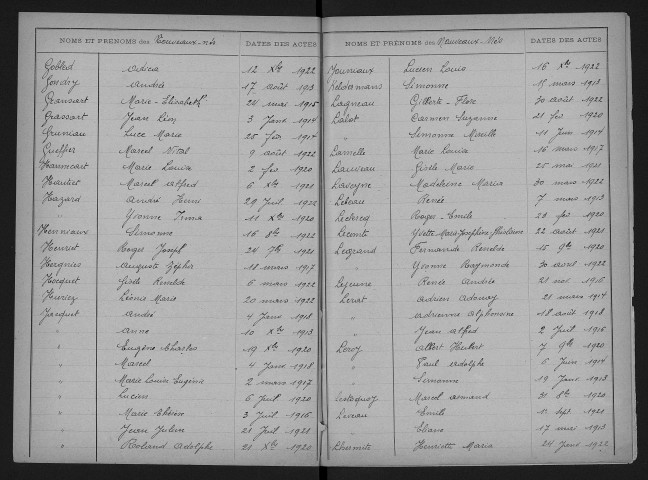 NOMS ET PRÉNOMS des Nouveaux-nés DATES DES ACTES
Gobled Odica 12 Xbre 1922
Gondry André 17 août 1913
Gransart Marie-Elisabeth 24 mai 1915
Grassart Jean Léon 3 Janv 1914
Gruniau Luce Maria 25 fév 1914
Gueffier Marcel Vital 9 août 1922
Haumecart Marie Louisa 2 fév 1920
Hautier Marcel Alfred 6 Xbre 1921
Hazard André Henri 29 Juil 1922
" Yvonne Irma 11 Xbre 1920
Henniaux Simonne 16 8bre 1922
Henriet Roger Joseph 24 7bre 1921
Hergnies Auguste Zéphir 18 mars 1917
Hocquet Gisèle Renelde 6 mars 1922
Huriez Léonie Marie 20 mars 1922
Jacquet André 4 Janv 1918
" Anne 10 Xbre 1913
" Eugène Charles 19 Xbre 1920
" Marcel 4 Janv 1918
" Marie Louise Eugénie 2 mars 1917
" Lucien 6 Juil 1920
" Marie Thérèse 3 Juil 1916
" Jean Julien 21 Juil 1921
" Roland Adolphe 21 Xbre 1920
NOMS ET PRÉNOMS des Nouveaux-Nés DATES DES ACTES
Jouniaux Lucien Louis 16 Xbre 1922
Keldermans Simonne 15 mars 1913
Lagneau Gilberte-Flore 30 août 1922
Lalot Carmen Suzanne 21 fév 1920
" Simonne Mireille 11 Juin 1914
Lamette Marie Louise 16 mars 1917
Lauveau Gisèle Marie 25 mai 1921
Lavogne Madeleine Maria 30 mars 1922
Lebeau Renée 7 mars 1913
Leclercq Roger-Emile 28 fév 1920
Lecomte Yvette Marie Joséphine Ghislaine 22 août 1921
Legrand Fernande Renelde 15 9bre 1920
" Yvonne Raymonde 30 avril 1922
Lejeune Renée Andrée 21 nov 1916
Lenat Adrien 21 mars 1914
" Adrienne Alphonsine 18 août 1918
" Jean Alfred 2 Juil 1916
Leroy Albert Hubert 7 9bre 1920
" Paul Adolphe 6 Juin 1914
" Simonne 19 Janv 1913
Marcel Armand 31 8bre 1920
Emile 11 sept 1921
" Eliane 17 mai 1913
Lhermite Henriette Maria 24 Janv 1922